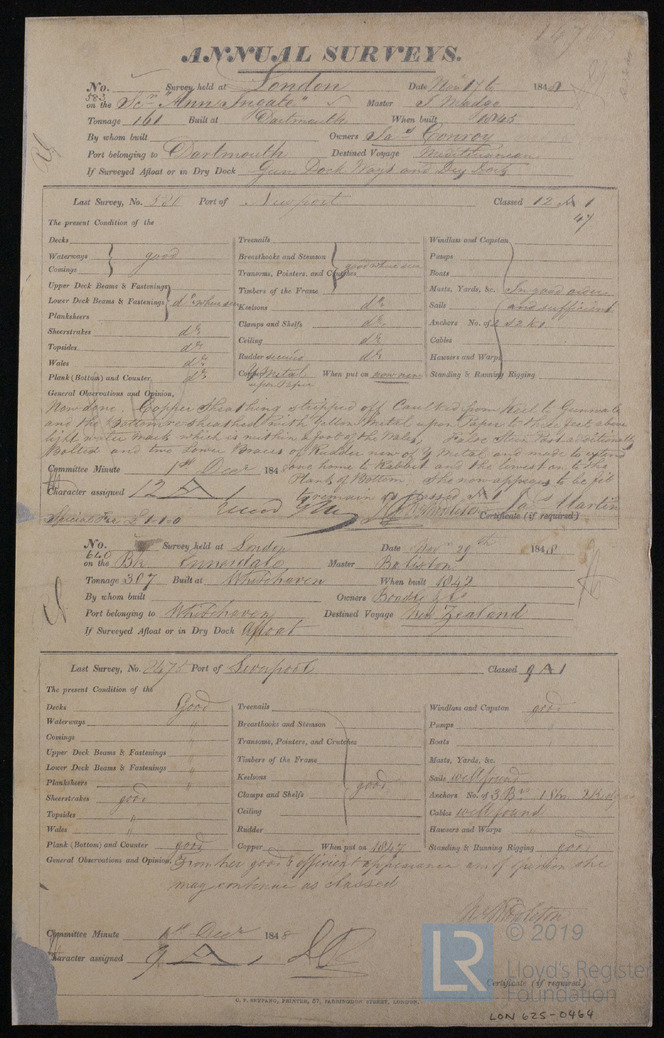 ANNUAL SURVEYS.
No. 583 Survey held at London Date Nov 17th 1848
on the Scr "Ann Ingate" Master J. Madge
Tonnage 161 Built at Dartmouth When built 1845
By whom built Owners Jas Conroy
Port belonging to Dartmouth Destined Voyage Mediterranean
If Surveyed Afloat or in Dry Dock Gun Dock Ways and Dry Dock
Last Survey, No. Port of Newport Classed 12 A 1
47
The present Condition of the
Decks
Waterways good
Comings
Upper Deck Beams & Fastenings
Lower Deck Beams & Fastenings do where seen
Planksheers
Sheerstrakes do
Topsides do
Wales do
Plank (Bottom) and Counter do
Treenails
Breasthooks and Stemson good where seen
Transoms, Pointers, and Crutches
Timbers of the Frame
Keelsons do
Clamps and Shelfs do
Ceiling do
Rudder secured do
Copper Y Metal upon Paper When put on now new
Windlass and Capstan
Pumps
Boats
Masts, Yards, &c. In good order
Sails and sufficient
Anchors No. of
Cables
Hawsers and Warps
Standing & Running Rigging
General Observations and Opinion,
Now done. Copper Sheathing stripped off Caulked from Keel to Gunwale
and the Bottom sheathed with Yellow Metal upon Paper to three feet above
light water mark which is within a foot of the Wales, False Stern Post additionally
Bolted and two lower Braces of Rudder now of Y Metal and made to extend
Committee Minute 1st Decr 1848 and home to Rabbit and the lowest on to the
Plank of Bottom. She now appears to be fit
Character assigned 12 A 1 to remain as classed A 1
Jas Martin
Special Fee £1-1-0 Certificate (if required)
No. 640 Survey held at London Date Novr 29th 1848
on the Bk Ennerdale Master Bolyston
Tonnage 307 Built at Whitehaven When built 1842
By whom built Owners Boadle & Co
Port belonging to Whitehaven Destined Voyage New Zealand
If Surveyed Afloat or in Dry Dock Afloat
Last Survey, No. 9475 Port of Liverpool Classed 9 A 1
The present Condition of the
Decks Good
Waterways "
Comings "
Upper Deck Beams & Fastenings "
Lower Deck Beams & Fastenings "
Planksheers "
Sheerstrakes good
Topsides "
Wales "
Plank (Bottom) and Counter good
Treenails
Breasthooks and Stemson
Transoms, Pointers, and Crutches
Timbers of the Frame
Keelsons good
Clamps and Shelfs
Ceiling
Rudder
Copper When put on 1847
Windlass and Capston good
Pumps
Boats
Masts, Yards, &c.
Sails well found
Anchors No. of 3 Brs 1 Stm 2 Kedges
Cables well found
Hawsers and Warps "
Standing & Running Rigging good
General Observations and Opinion, From her good & efficient appearance am of opinion she
may continue as classed
Committee Minute 1st Decr 1848
Character assigned 9 A 1
Certificate (if required)
© 2019
LR
Lloyd's Register
Foundation
LON 625-0464